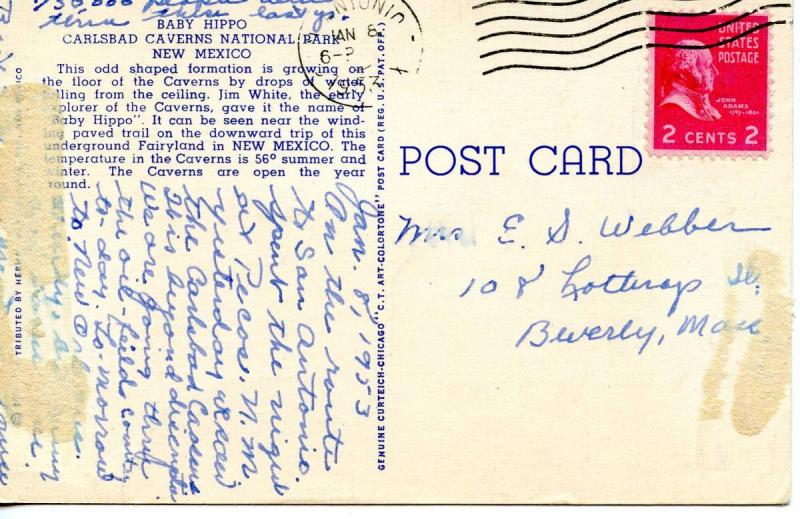 BABY HIPPO
CARLSBAD CAVERNS NATIONAL PARK
NEW MEXICO
This odd shaped formation is growing on
the floor of the Caverns by drops of water
falling from the ceiling. Jim White, the early
explorer of the Caverns, gave it the name of
"Baby Hippo". It can be seen near the wind-
ing paved trail on the downward trip of this
underground Fairyland in NEW MEXICO. The
temperature in the Caverns is 56° summer and
winter. The Caverns are open the year
round.
Jan. 8, 1953
On the route
to San Antonio.
Spent the night
at Pecos. N. M.
Yesterday we saw
the Carlsbad Caverns
It is beyond
We are going thru
the oil-field country
to-day. To-morrow
to New
TRIBUTED BY
GENUINE CURTEICH-CHICAGO "C.T. ART-COLORTONE" POST CARD (REG. U.S. PAT. OFF.)
JAN 8
6-P
1953
UNITED
STATES
POSTAGE
JOHN
ADAMS
1797-1801
2 CENTS 2
POST CARD
Mrs E. S. Webber
108 Lothrop St.
Beverly, Mass